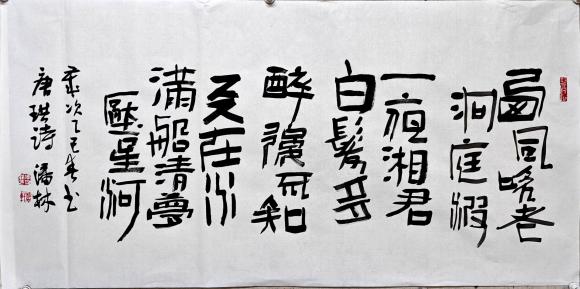 西風吹老
洞庭波
一夜湘君
白髮多
醉後不知
天在水
滿船清夢
壓星河
歲次乙巳春書
唐珙詩 潘林